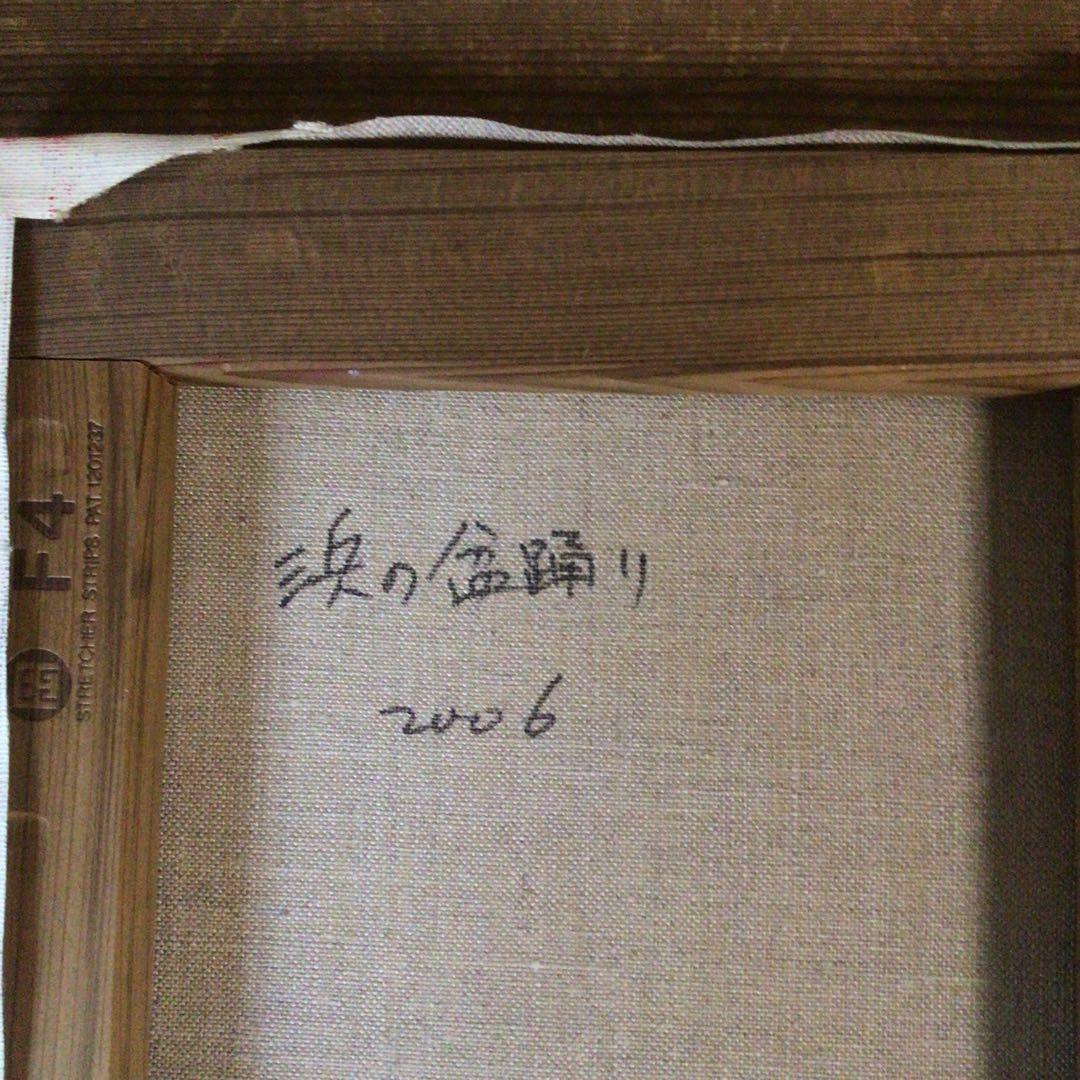 F4
STRETCHER STRIPS. PAT.1201237
浜の盆踊り
2006